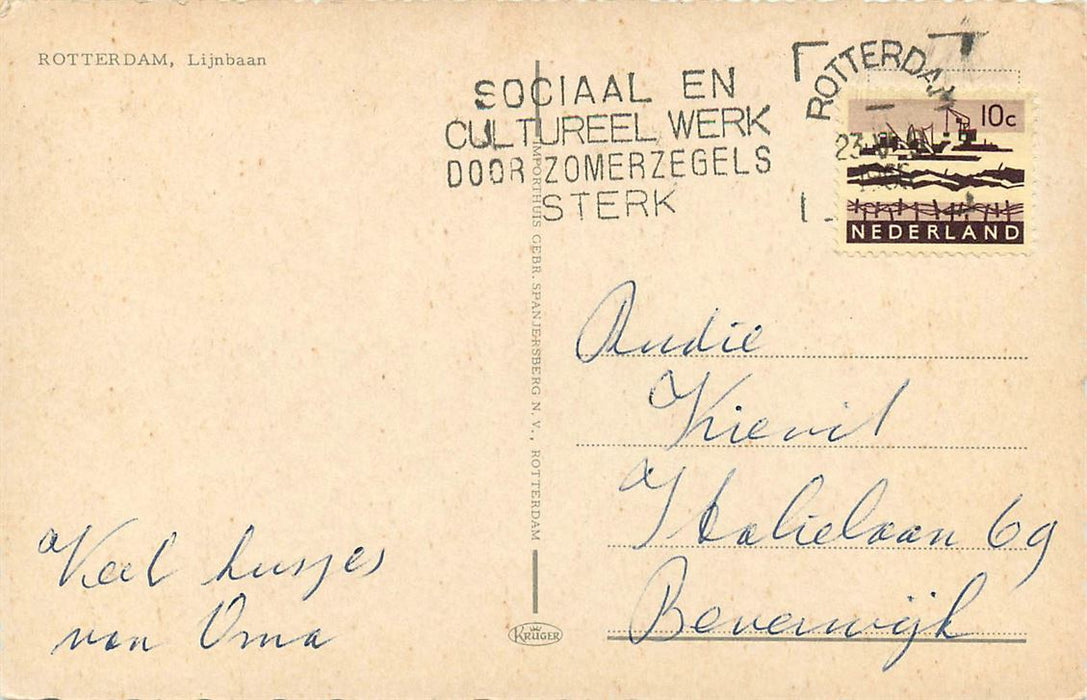 ROTTERDAM, Lijnbaan
SOCIAAL EN
CULTUREEL WERK
DOOR ZOMERZEGELS
STERK
ROTTERDAM
23
10c
NEDERLAND
IMPORTHUIS GEBR. SPANJERSBERG N.V., ROTTERDAM
KRÜGER
Veel kusjes
van Oma
Rudie
Kievit
Italielaan 69
Beverwijk